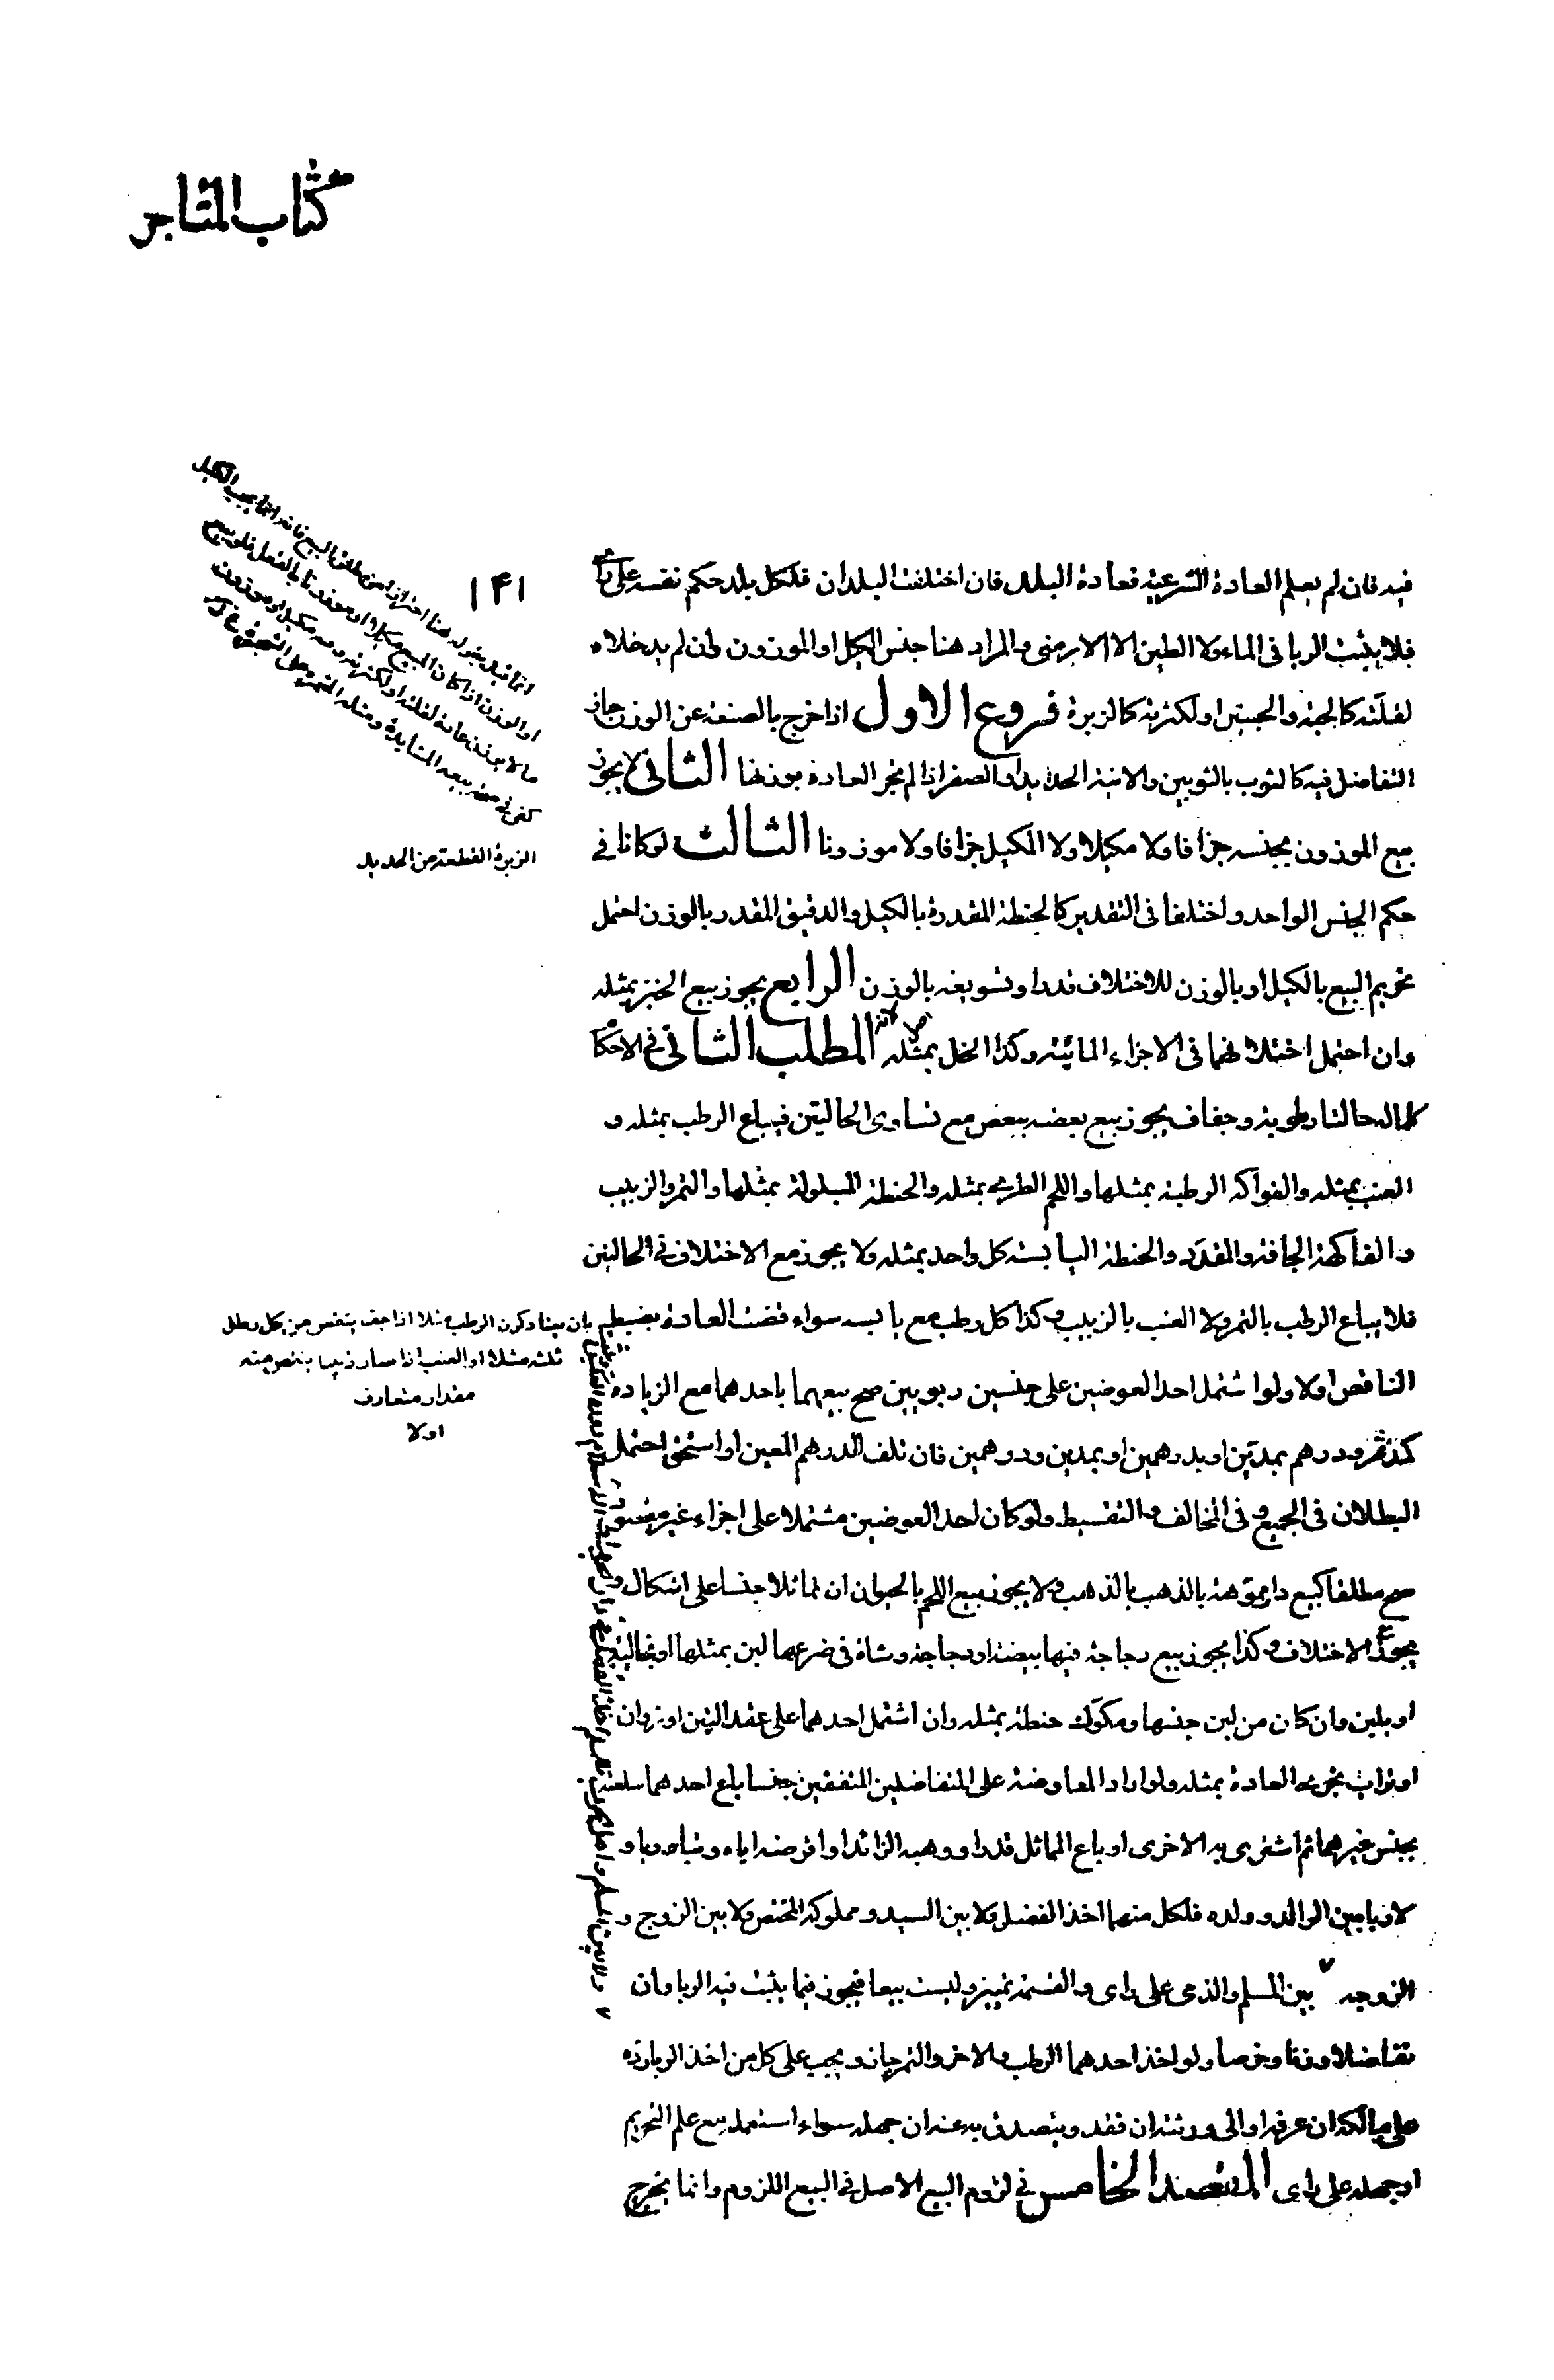 كتاب المتاجر
١۴١
فيه فان لم يعلم العادة الشرعية فعادة البلد فان اختلفت البلدان فلكل بلد حكم نفسه على راى
فلا يثبت الربا فى الماء ولا الطين الا الارمنى والمراد هنا جنس المكيل او الموزون وان لم يدخلاه
لقلته كالحبة والحبتين او لكثرته كالزبرة فروع الاول اذا خرج بالصنعة عن الوزن جاز
التفاضل فيه كالثوب بالثوبين والانية الحديد او الصفر اذا لم تجر العادة بوزنها الثانى لا يجوز
بيع الموزون بجنسه جزافا ولا مكيلا ولا المكيل جزافا ولا موزونا الثالث لو كانا فى
حكم الجنس الواحد واختلفا فى التقدير كالحنطة المقدرة بالكيل والدقيق المقدر بالوزن احتمل
تحريم البيع بالكيل او بالوزن للاختلاف قدرا وتسويغه بالوزن الرابع يجوز بيع الخبز بمثله
وان احتمل اختلافهما فى الاجزاء المائية وكذا الخل بمثله لانه اصلا المطلب الثانى فى الاحكام
كلما له حالتا رطوبة وجفاف يجوز بيع بعضه ببعض مع تساوى الحالتين فيباع الرطب بمثله و
العنب بمثله والفواكه الرطبة بمثلها واللحم الطرى بمثله والحنطة المبلولة بمثلها والتمر والزبيب
والفاكهة الجافة والمقدد والحنطة اليابسة كل واحد بمثله ولا يجوز مع الاختلاف فى الحالتين
فلا يباع الرطب بالتمر ولا العنب بالزبيب وكذا كل رطب مع يابسه سواء قضت العادة بضبط
الناقص او لا ولو اشتمل احد العوضين على جنسين ربويين صح بيعهما باحدهما مع الزيادة
كمد تمر ودرهم بمدين او بدرهمين او بمدين ودرهمين فان تلف الدرهم المعين او استحق احتمل
البطلان فى الجميع وفى المخالف والتقسيط ولو كان احد العوضين مشتملا على اجزاء غير مقصودة
صح مطلقا كبيع دار مموهة بالذهب بالذهب ولا يجوز بيع اللحم بالحيوان ان تماثلا جنسا على اشكال و
يجوز مع الاختلاف وكذا يجوز بيع دجاجة فيها بيضة او دجاجة وشاة فى ضرعها لبن بمثلها او بخالية
او بلبن وان كان من لبن جنسها ومكوك حنطة بمثله وان اشتمل احدهما على عقد التبن او زوان
او تراب بمجرى العادة بمثله ولو اراد المعاوضة على المتفاضلين المتفقين جنسا باع احدهما سلعته
بجنس غيرهما ثم اشترى به الاخرى او باع المماثل قدرا ووهبه الزائد او اقرضه اياه وتباريا و
لا ربا بين الوالد وولده فلكل منهما اخذ الفضل ولا بين السيد ومملوكه المختص ولا بين الزوج و
الزوجة بين المسلم والذمى على راى والقسمة تمييز وليست بيعا فيجوز فيما يثبت فيه الربا وان
تفاضلا وزنا وخرصا ولو اخذ احدهما الرطب والاخر التمر جاز ويجب على كل من اخذ الربا رده
على مالكه ان عرفه او الى ورثته ان فقد ويتصدق به عنه ان جهله سواء استعمله مع علم التحريم
او جهله على راى المقصد الخامس فى لزوم البيع الاصل فى البيع اللزوم وانما يخرج
الزبرة القطعة من الحديد
بان يعتاد كون الرطب مثلا اذا جف ينقص من كل رطل
ثلثه مثلا او العنب اذا صار زبيبا ينقص منه
مقدار متعارف
اولا